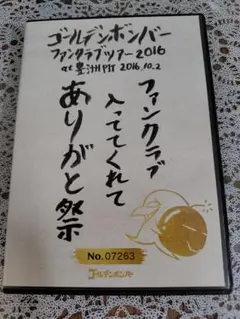 ゴールデンボンバー
ファンクラブツアー2016
at 豊洲PIT 2016.10.2
ファンクラブ
入っててくれて
ありがと祭
No. 07263
ゴールデンボンバー